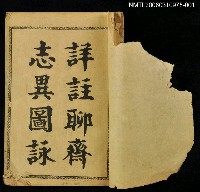 NMTL20060310976-001
詳註聊齋
志異圖詠